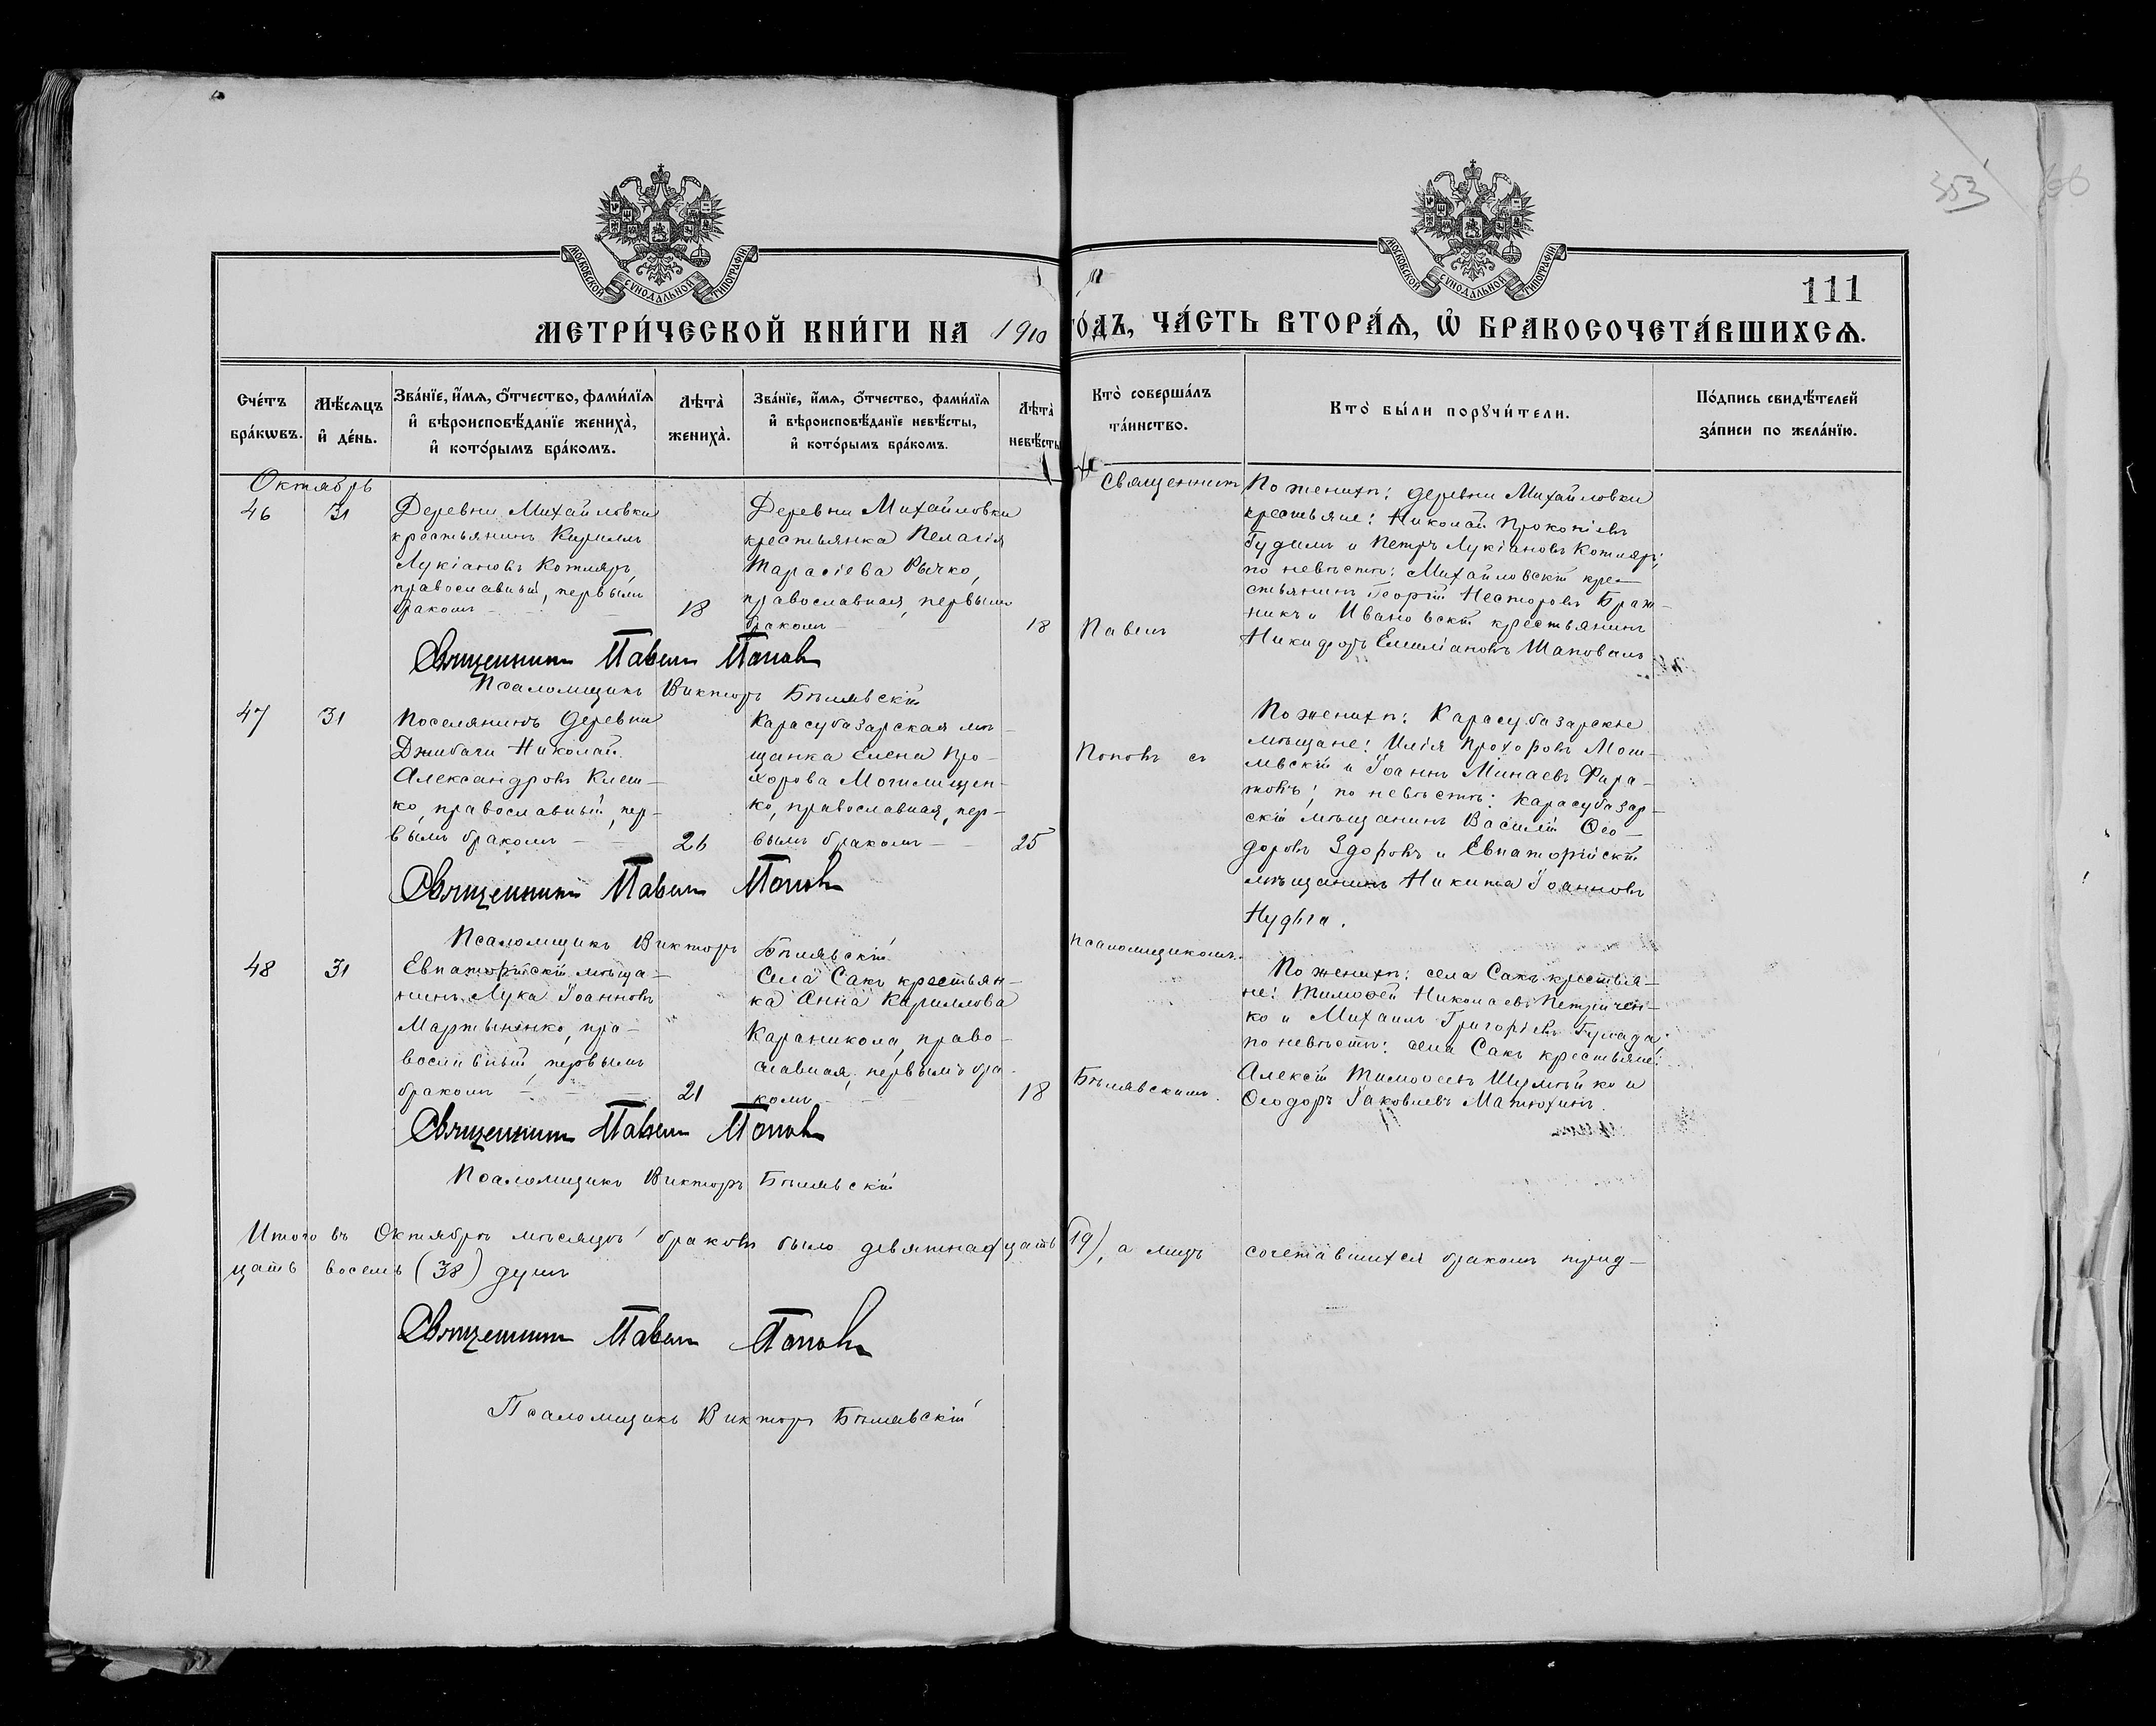 МОСКОВСКОЙ СѴНОДАЛЬНОЙ ТИПОГРАФІИ
МОСКОВСКОЙ СѴНОДАЛЬНОЙ ТИПОГРАФІИ
353
111
МЕТРИ́ЧЕСКОЙ КНИ́ГИ НА 1910 ГО́ДЪ, ЧА́СТЬ ВТОРА́Ѧ, Ѡ҆ БРАКОСОЧЕТА́ВШИХСѦ.
Сче́тъ бра́кѡвъ.
Мѣ́сѧцъ и҆ де́нь.
Зва́нїе, и҆́мѧ, ѻ҆́тчество, фами́лїѧ и҆ вѣроисповѣ́данїе жениха̀, и҆ кото́рымъ бра́комъ.
Лѣта̀ жениха̀.
Зва́нїе, и҆́мѧ, ѻ҆́тчество, фами́лїѧ и҆ вѣроисповѣ́данїе невѣ́сты, и҆ кото́рымъ бра́комъ.
Лѣта̀ невѣ́сты
Кто̀ соверша́лъ та́инство.
Кто̀ бы́ли порꙋчи́тели.
По́дпись свидѣ́телей за́писи по жела́нїю.
Октябрь
46
31
Деревни Михайловки
крестьянинъ Кириллъ
Лукіановъ Котляръ,
православный, первымъ
бракомъ
18
Деревни Михайловки
крестьянка Пелагія
Тарасіева Рычко,
православная, первымъ
бракомъ
18
Священник
Павелъ
По женихѣ: деревни Михайловки
крестьяне: Николай Прокопіевъ
Гудимъ и Петръ Лукіановъ Котляръ;
по невѣстѣ: Михайловскій кре-
стьянинъ Георгій Несторовъ Браж-
никъ и Ивановскій крестьянинъ
Никифоръ Емиліановъ Шаповалъ
Священникъ Павелъ Поповъ
Псаломщикъ Викторъ Бѣлявскій
47
31
Поселянинъ деревни
Джабачи Николай
Александровъ Клеш-
ко, православный, пер-
вымъ бракомъ
26
Карасубазарская мѣ-
щанка Елена Про-
хорова Могилищен-
ко, православная, пер-
вымъ бракомъ
25
Поповъ съ
По женихѣ: Карасубазарскіе
мѣщане: Илія Прохоровъ
и Іоаннъ Минаевъ Фира-
; по невѣстѣ: Карасубазар-
скій мѣщанинъ Василій Ѳео-
доровъ Здоровъ и Евпаторійскій
мѣщанинъ Никита Іоанновъ
Нудьга.
Священникъ Павелъ Поповъ
Псаломщикъ Викторъ Бѣлявскій
псаломщикомъ
48
31
Евпаторійскій мѣща-
нинъ Лука Іоанновъ
Мартыненко, пра-
вославный, первымъ
бракомъ
21
Села Сакъ крестьян-
ка Анна Кириллова
Караникола, право-
славная, первымъ бра-
комъ
18
Бѣлявскимъ.
По женихѣ: села Сакъ крестья-
не: Тимоѳей Николаевъ Петричен-
ко и Михаилъ Григоріевъ Гумада;
по невѣстѣ: села Сакъ крестьяне:
Алексій Тимоѳеевъ Шумѣйко и
Ѳеодоръ Іаковлевъ Матюхинъ.
Священникъ Павелъ Поповъ
Псаломщикъ Викторъ Бѣлявскій
Итого въ Октябрѣ мѣсяцѣ браковъ было девятнадцать (19), а лицъ сочетавшихся бракомъ трид-
цать восемь (38) душъ
Священникъ Павелъ Поповъ
Псаломщикъ Викторъ Бѣлявскій